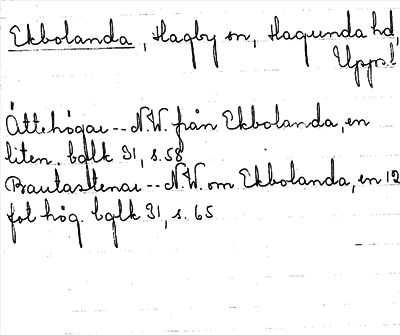 Ekbolanda, Hagby sn, Hagunda hd,
Uppl.
Ättehögar -- N.W. från Ekbolanda, en
liten. bglk 31, s. 58
Brautastenar -- N.W. om Ekbolanda, en 12
fot hög. bglk 31, s. 65